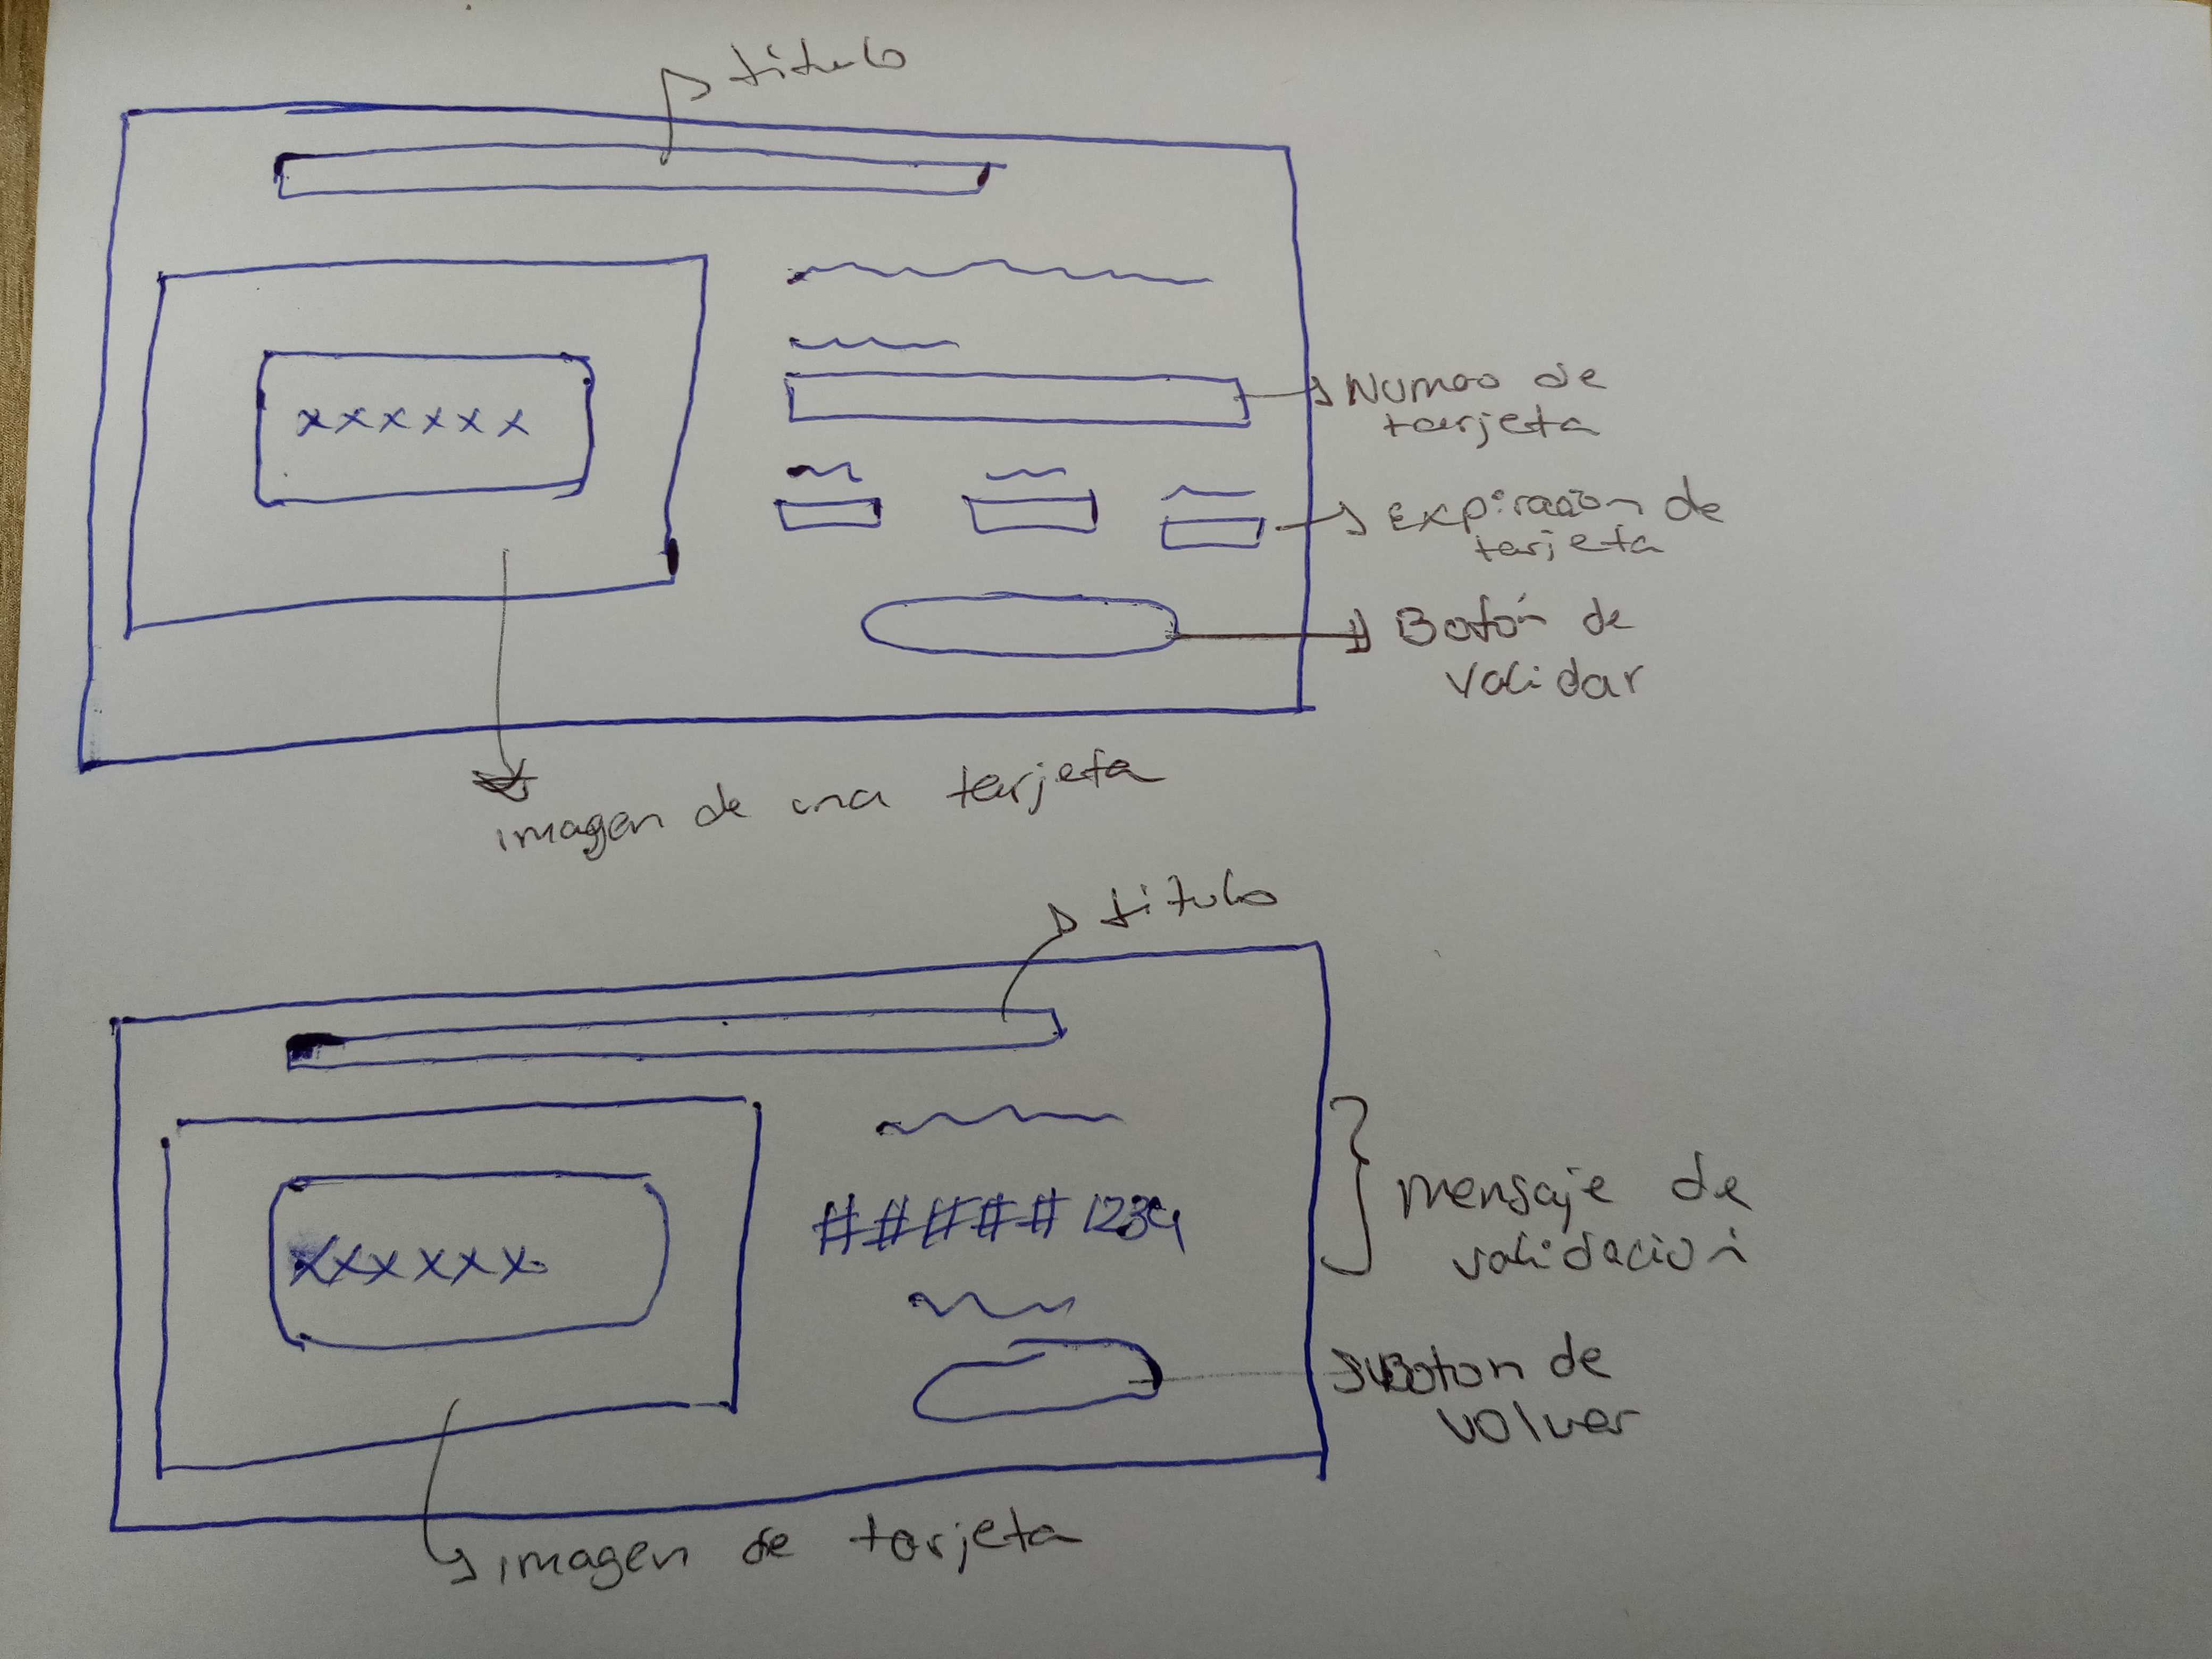 título
xxxxxx
Numero de
tarjeta
Expiración de
tarjeta
Botón de
validar
imagen de una tarjeta
titulo
xxxxxx
#####1234
mensaje de
validación
Boton de
volver
imagen de tarjeta